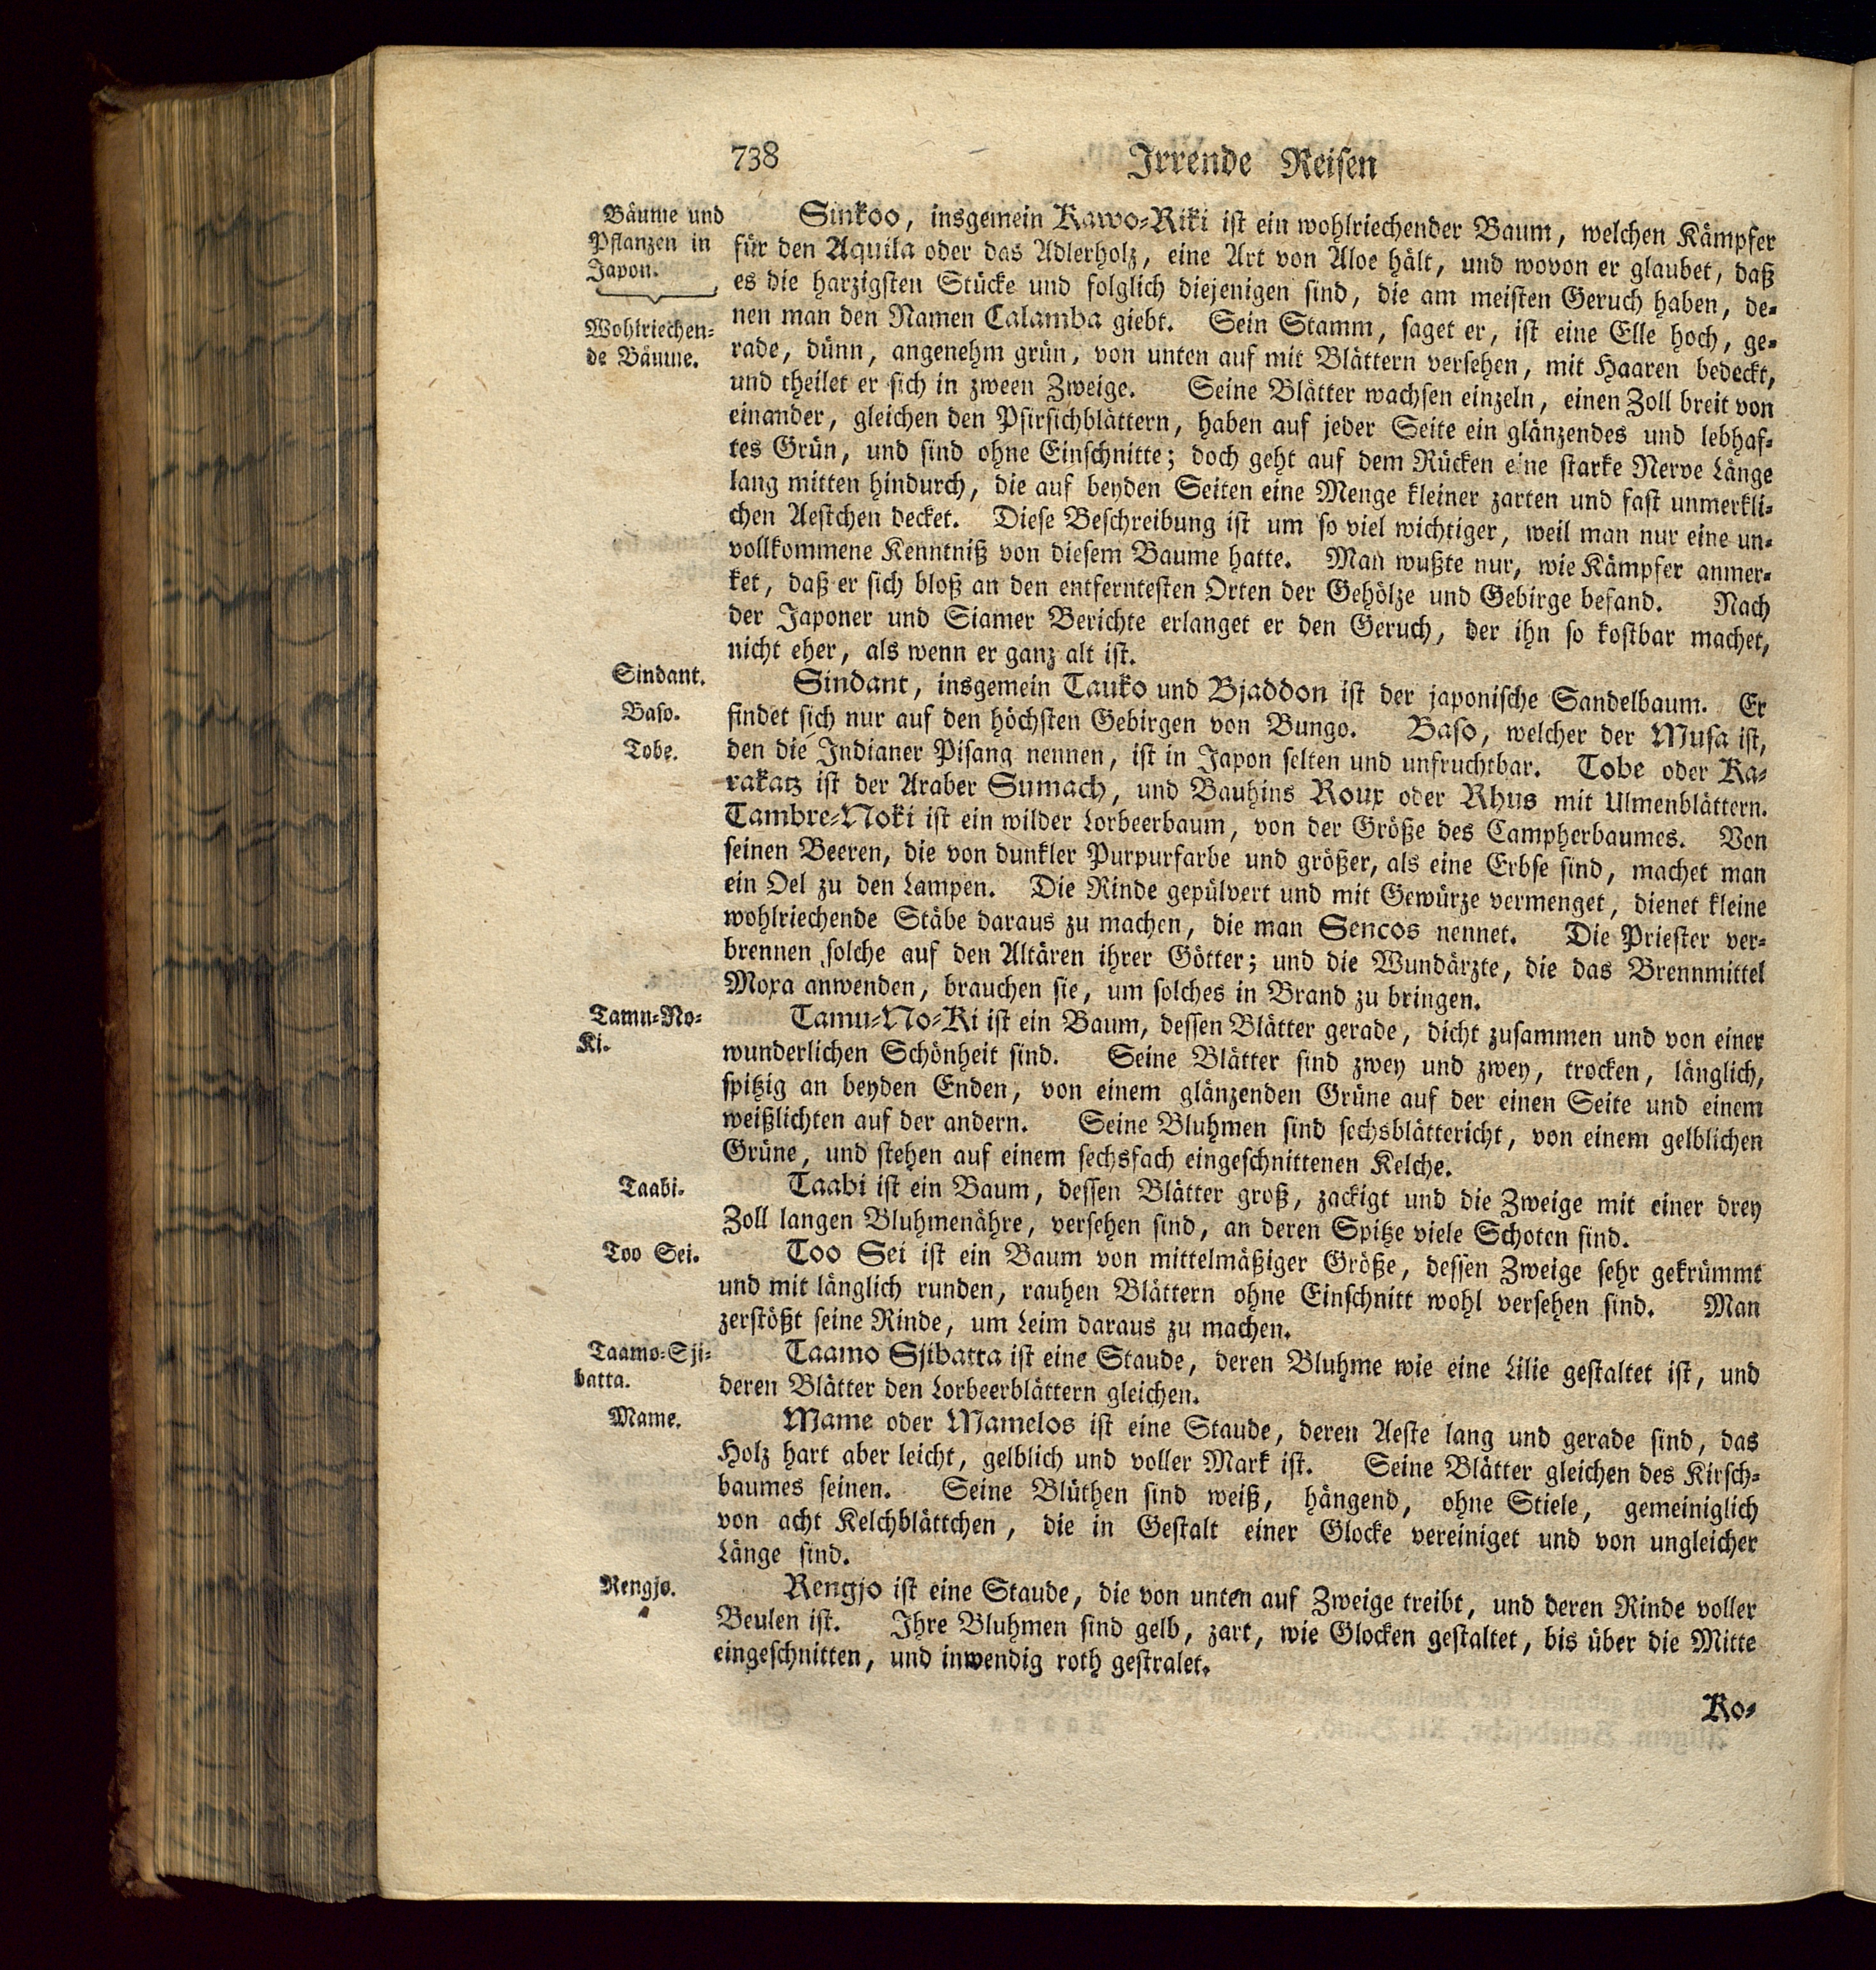 738
Irrende Reisen
Bäume und
Pflanzen in
Japon.
Wohlriechen=
de Bäume.
Sinkoo, insgemein Kawo=Riki ist ein wohlriechender Baum, welchen Kämpfer
für den Aquila oder das Adlerholz, eine Art von Aloe hält, und wovon er glaubet, daß
es die harzigsten Stücke und folglich diejenigen sind, die am meisten Geruch haben, de=
nen man den Namen Calamba giebt. Sein Stamm, saget er, ist eine Elle hoch, ge=
rade, dünn, angenehm grün, von unten auf mit Blättern versehen, mit Haaren bedeckt,
und theilet er sich in zween Zweige. Seine Blätter wachsen einzeln, einen Zoll breit von
einander, gleichen den Pfirsichblättern, haben auf jeder Seite ein glänzendes und lebhaf=
tes Grün, und sind ohne Einschnitte; doch geht auf dem Rücken eine starke Nerve Länge
lang mitten hindurch, die auf beyden Seiten eine Menge kleiner zarten und fast unmerkli=
chen Aestchen decket. Diese Beschreibung ist um so viel wichtiger, weil man nur eine un=
vollkommene Kenntniß von diesem Baume hatte. Man wußte nur, wie Kämpfer anmer=
ket, daß er sich bloß an den entferntesten Orten der Gehölze und Gebirge befand. Nach
der Japoner und Siamer Berichte erlanget er den Geruch, der ihn so kostbar machet,
nicht eher, als wenn er ganz alt ist.
Sindant.
Baso.
Tobe.
Sindant, insgemein Tauko und Bjaddon ist der japonische Sandelbaum. Er
findet sich nur auf den höchsten Gebirgen von Bungo. Baso, welcher der Musa ist,
den die Indianer Pisang nennen, ist in Japon selten und unfruchtbar. Tobe oder Ka=
rakatz ist der Araber Sumach, und Bauhins Roux oder Rhus mit Ulmenblättern.
Tambre=Noki ist ein wilder Lorbeerbaum, von der Größe des Campherbaumes. Von
seinen Beeren, die von dunkler Purpurfarbe und größer, als eine Erbse sind, machet man
ein Oel zu den Lampen. Die Rinde gepülvert und mit Gewürze vermenget, dienet kleine
wohlriechende Stäbe daraus zu machen, die man Sencos nennet. Die Priester ver=
brennen solche auf den Altären ihrer Götter; und die Wundärzte, die das Brennmittel
Moxa anwenden, brauchen sie, um solches in Brand zu bringen.
Tamu=No=
Ki.
Tamu=No=Ki ist ein Baum, dessen Blätter gerade, dicht zusammen und von einer
wunderlichen Schönheit sind. Seine Blätter sind zwey und zwey, trocken, länglich,
spitzig an beyden Enden, von einem glänzenden Grüne auf der einen Seite und einem
weißlichten auf der andern. Seine Bluhmen sind sechsblättericht, von einem gelblichen
Grüne, und stehen auf einem sechsfach eingeschnittenen Kelche.
Taabi.
Taabi ist ein Baum, dessen Blätter groß, zackigt und die Zweige mit einer drey
Zoll langen Bluhmenähre, versehen sind, an deren Spitze viele Schoten sind.
Too Sei.
Too Sei ist ein Baum von mittelmäßiger Größe, dessen Zweige sehr gekrümmt
und mit länglich runden, rauhen Blättern ohne Einschnitt wohl versehen sind. Man
zerstößt seine Rinde, um Leim daraus zu machen.
Taamo=Sji=
batta.
Taamo Sjibatta ist eine Staude, deren Bluhme wie eine Lilie gestaltet ist, und
deren Blätter den Lorbeerblättern gleichen.
Mame.
Mame oder Mamelos ist eine Staude, deren Aeste lang und gerade sind, das
Holz hart aber leicht, gelblich und voller Mark ist. Seine Blätter gleichen des Kirsch=
baumes seinen. Seine Blüthen sind weiß, hängend, ohne Stiele, gemeiniglich
von acht Kelchblättchen, die in Gestalt einer Glocke vereiniget und von ungleicher
Länge sind.
Rengjo.
Rengjo ist eine Staude, die von unten auf Zweige treibt, und deren Rinde voller
Beulen ist. Ihre Bluhmen sind gelb, zart, wie Glocken gestaltet, bis über die Mitte
eingeschnitten, und inwendig roth gestralet.
Ko=